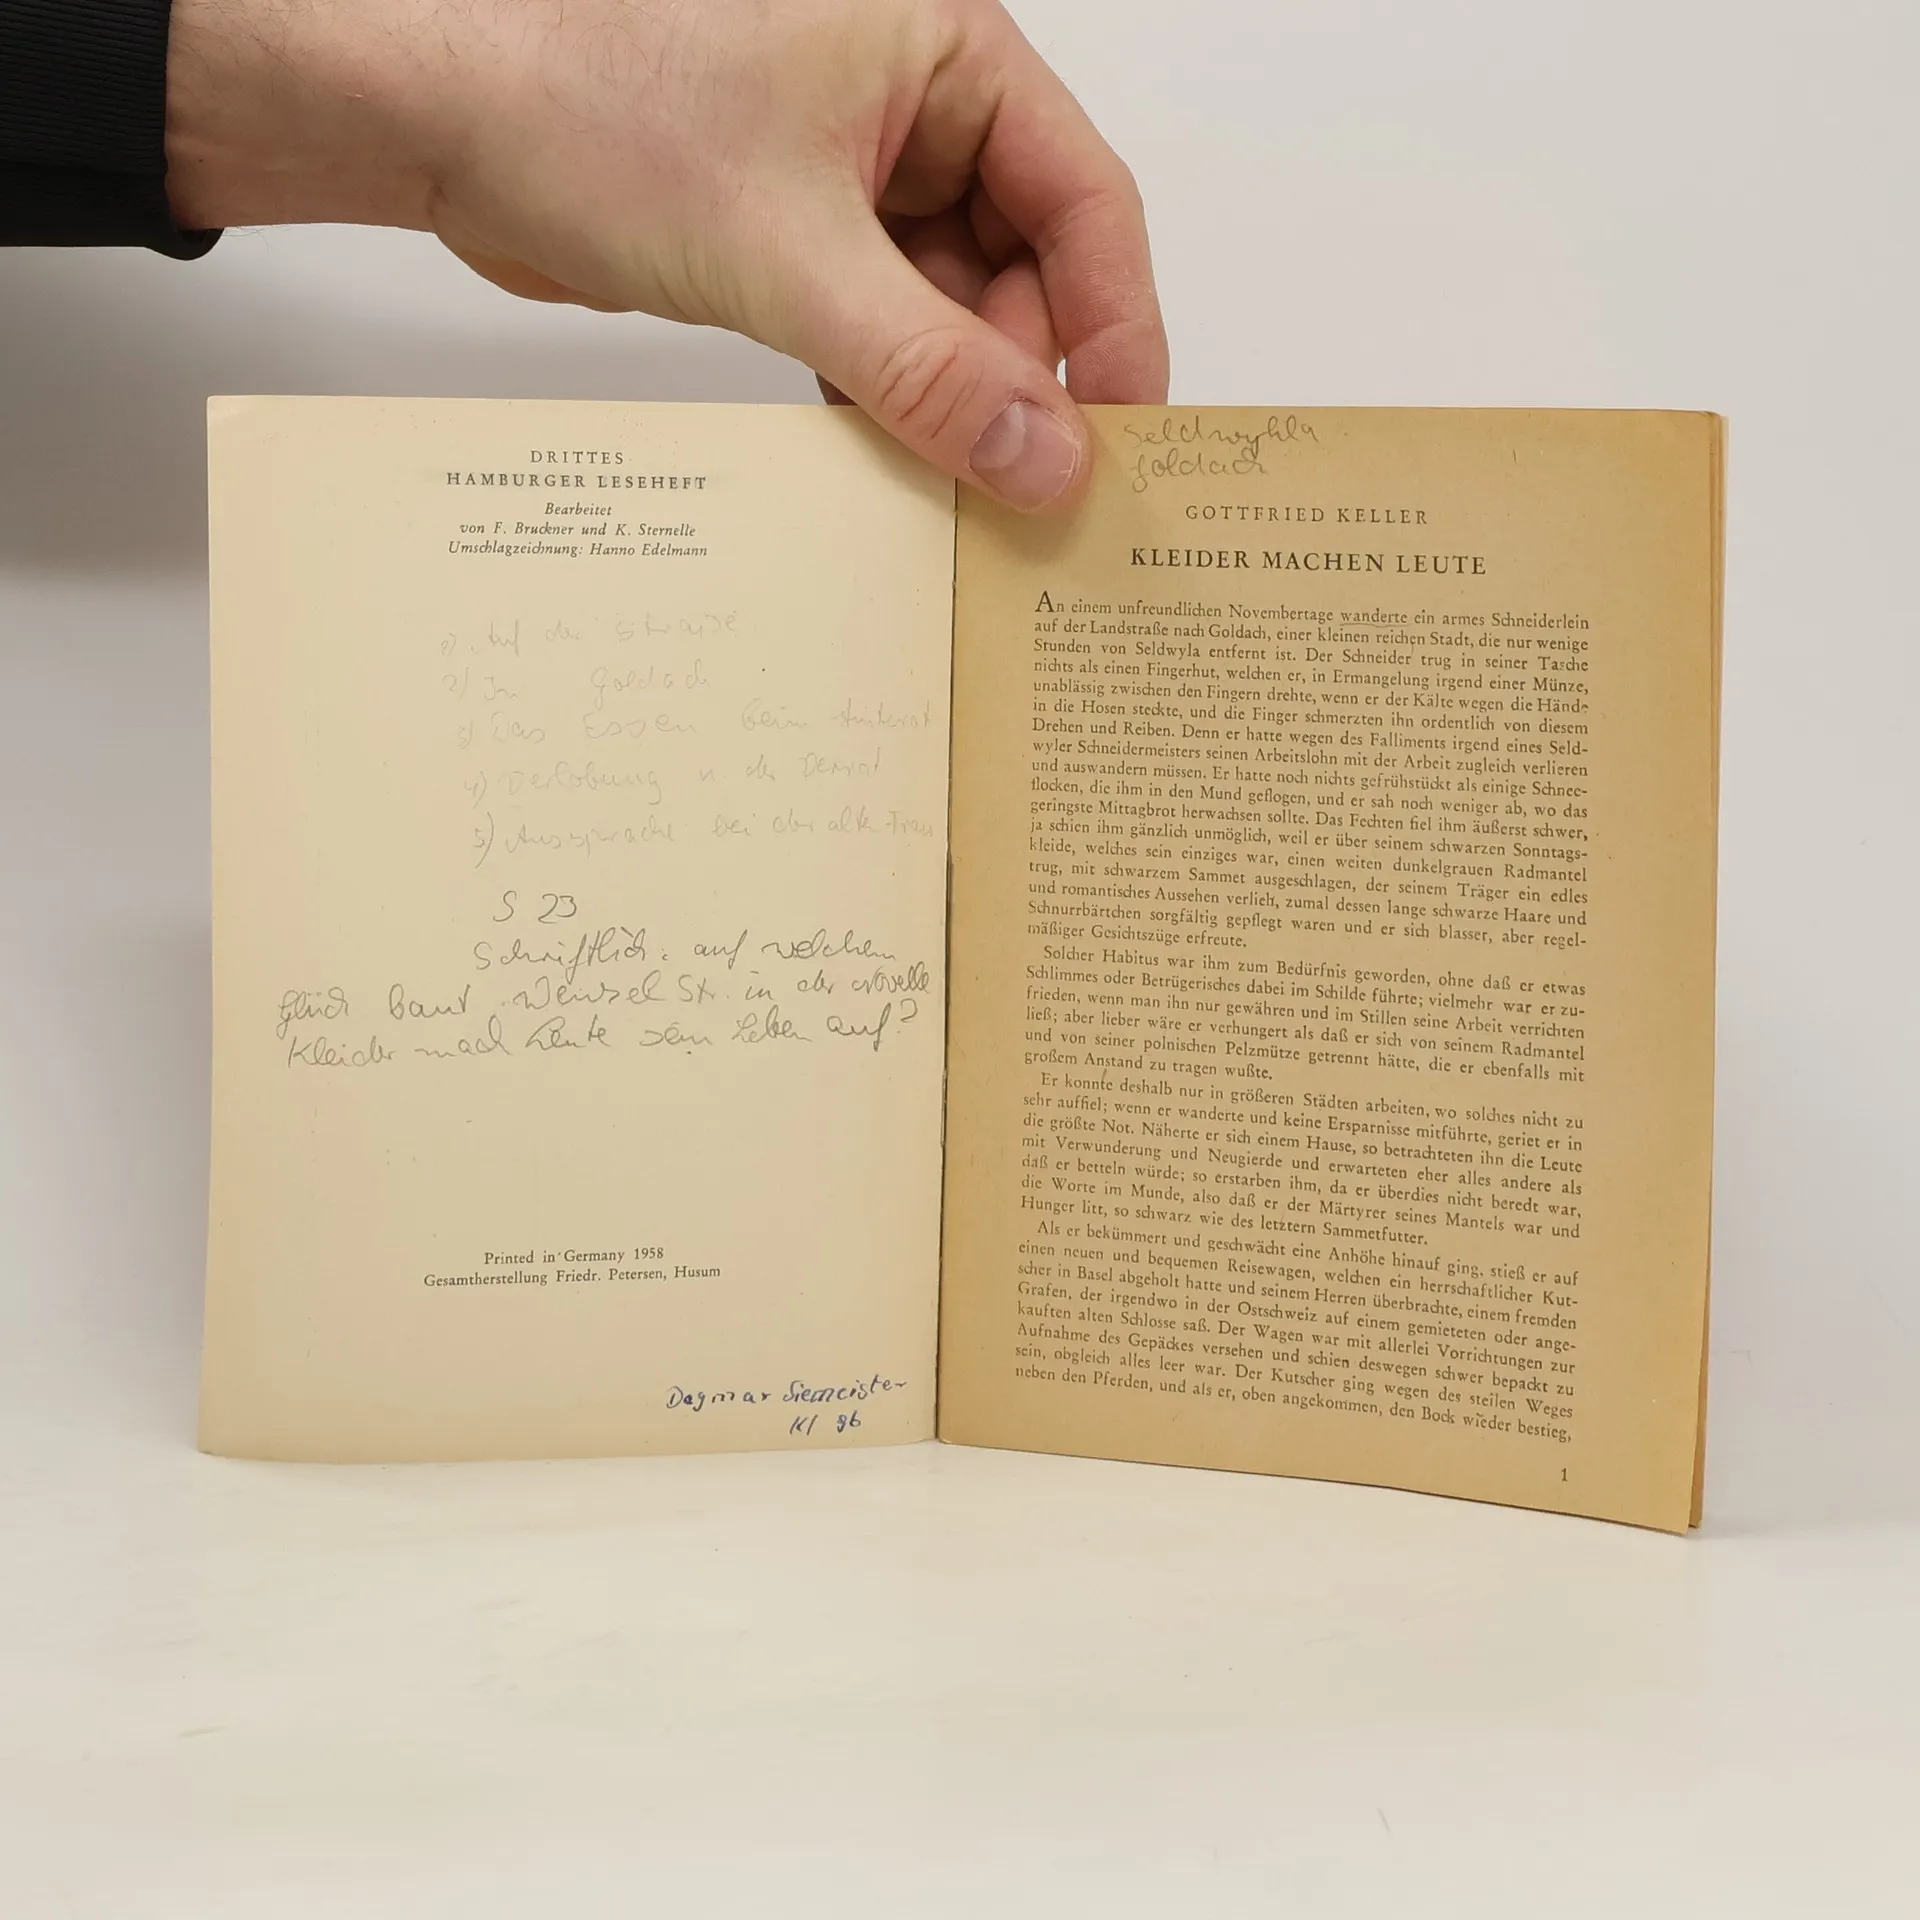 DRITTES
HAMBURGER LESEHEFT
Bearbeitet
von F. Bruckner und K. Sternelle
Umschlagzeichnung: Hanno Edelmann
1) Auf der Straße
2) In Goldach
3) Das Essen beim
4) Verlobung u. der Verrat
5) Aussprache bei der alten Frau
S 23
Schriftlich: auf welchem
Glück baut Wenzel Str. in der Novelle
Kleider mach Leute sein Leben auf?
Printed in Germany 1958
Gesamtherstellung Friedr. Petersen, Husum
Dagmar Siemeister
Kl 9b
Seldwyhla
Goldach
GOTTFRIED KELLER
KLEIDER MACHEN LEUTE
An einem unfreundlichen Novembertage wanderte ein armes Schneiderlein
auf der Landstraße nach Goldach, einer kleinen reichen Stadt, die nur wenige
Stunden von Seldwyla entfernt ist. Der Schneider trug in seiner Tasche
nichts als einen Fingerhut, welchen er, in Ermangelung irgend einer Münze,
unablässig zwischen den Fingern drehte, wenn er der Kälte wegen die Hände
in die Hosen steckte, und die Finger schmerzten ihn ordentlich von diesem
Drehen und Reiben. Denn er hatte wegen des Falliments irgend eines Seld-
wyler Schneidermeisters seinen Arbeitslohn mit der Arbeit zugleich verlieren
und auswandern müssen. Er hatte noch nichts gefrühstückt als einige Schnee-
flocken, die ihm in den Mund geflogen, und er sah noch weniger ab, wo das
geringste Mittagbrot herwachsen sollte. Das Fechten fiel ihm äußerst schwer,
ja schien ihm gänzlich unmöglich, weil er über seinem schwarzen Sonntags-
kleide, welches sein einziges war, einen weiten dunkelgrauen Radmantel
trug, mit schwarzem Sammet ausgeschlagen, der seinem Träger ein edles
und romantisches Aussehen verlieh, zumal dessen lange schwarze Haare und
Schnurrbärtchen sorgfältig gepflegt waren und er sich blasser, aber regel-
mäßiger Gesichtszüge erfreute.
Solcher Habitus war ihm zum Bedürfnis geworden, ohne daß er etwas
Schlimmes oder Betrügerisches dabei im Schilde führte; vielmehr war er zu-
frieden, wenn man ihn nur gewähren und im Stillen seine Arbeit verrichten
ließ; aber lieber wäre er verhungert als daß er sich von seinem Radmantel
und von seiner polnischen Pelzmütze getrennt hätte, die er ebenfalls mit
großem Anstand zu tragen wußte.
Er konnte deshalb nur in größeren Städten arbeiten, wo solches nicht zu
sehr auffiel; wenn er wanderte und keine Ersparnisse mitführte, geriet er in
die größte Not. Näherte er sich einem Hause, so betrachteten ihn die Leute
mit Verwunderung und Neugierde und erwarteten eher alles andere als
daß er betteln würde; so erstarben ihm, da er überdies nicht beredt war,
die Worte im Munde, also daß er der Märtyrer seines Mantels war und
Hunger litt, so schwarz wie des letztern Sammetfutter.
Als er bekümmert und geschwächt eine Anhöhe hinauf ging, stieß er auf
einen neuen und bequemen Reisewagen, welchen ein herrschaftlicher Kut-
scher in Basel abgeholt hatte und seinem Herren überbrachte, einem fremden
Grafen, der irgendwo in der Ostschweiz auf einem gemieteten oder ange-
kauften alten Schlosse saß. Der Wagen war mit allerlei Vorrichtungen zur
Aufnahme des Gepäckes versehen und schien deswegen schwer bepackt zu
sein, obgleich alles leer war. Der Kutscher ging wegen des steilen Weges
neben den Pferden, und als er, oben angekommen, den Bock wieder bestieg,
1